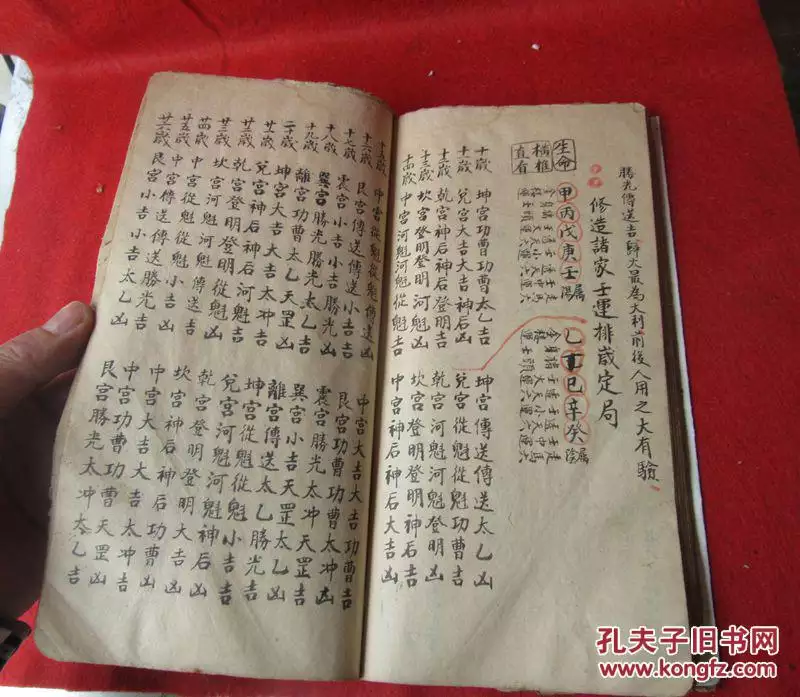 勝光傳送吉歸大最為大利前後人用之大有驗
修造諸家壬運排歲定局
生命 甲丙戊庚壬屬陽 乙丁巳辛癸屬陰
橫推
直有
十歲 坤宮功曹功曹太乙吉 坤宮傳送傳送太乙凶
十一歲 兌宮大吉大吉神后凶 兌宮從魁從魁功曹吉
十二歲 乾宮神后神后登明吉 乾宮河魁河魁登明凶
十三歲 坎宮登明登明河魁凶 坎宮登明登明神后吉
十四歲 中宮河魁河魁從魁吉 中宮神后神后大吉凶
十五歲 中宮從魁從魁傳送凶 中宮大吉大吉功曹吉
十六歲 艮宮傳送傳送小吉吉 艮宮功曹功曹太冲凶
十七歲 震宮小吉小吉勝光凶 震宮勝光太冲天罡吉
十八歲 巽宮勝光勝光太乙吉 巽宮小吉天罡太乙凶
十九歲 離宮功曹太乙天罡凶 離宮傳送太乙勝光吉
二十歲 坤宮大吉大吉太冲吉 坤宮從魁從魁小吉凶
廿一歲 兌宮神后神后 兌宮河魁河魁神后吉
廿二歲 乾宮登明登明 乾宮登明登明大吉凶
廿三歲 坎宮河魁河魁傳送吉 坎宮神后神后功曹吉
廿四歲 中宮從魁從魁 中宮大吉大吉太冲凶
廿五歲 中宮傳送傳送勝光吉 中宮功曹功曹天罡吉
廿六歲 艮宮小吉小吉太乙凶 艮宮勝光太冲太乙吉
孔夫子旧书网
www.kongfz.com